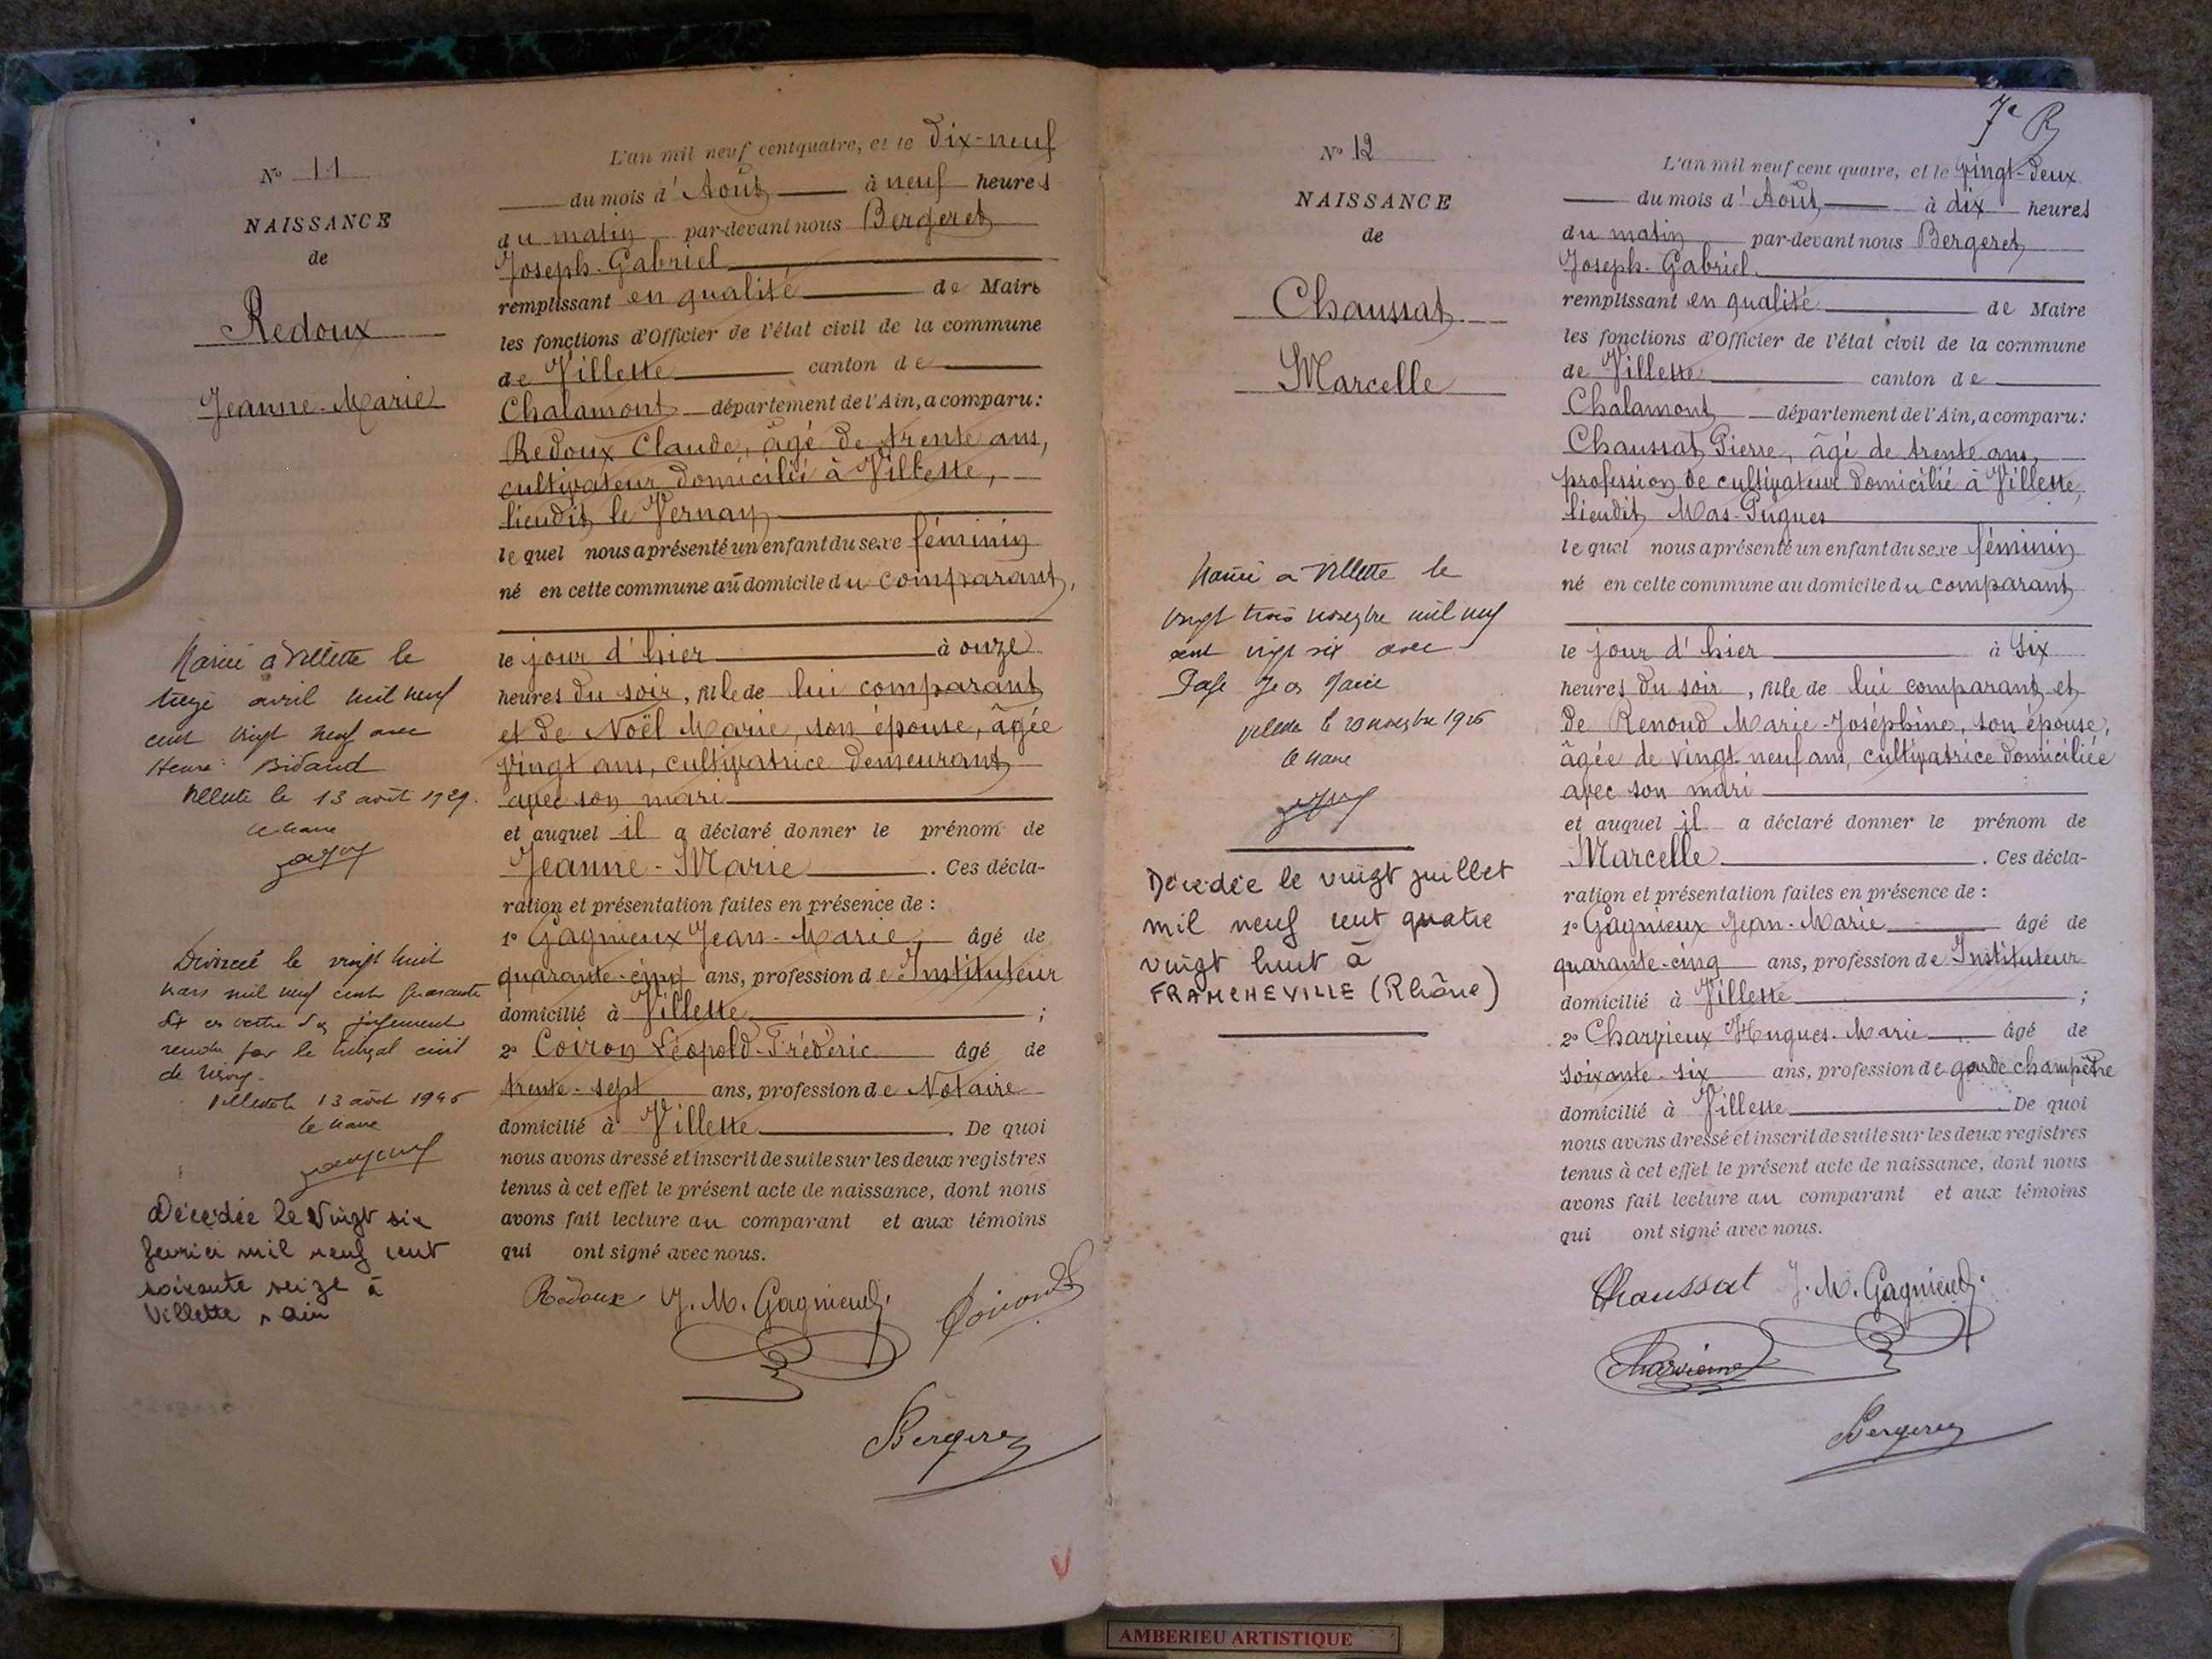 N° 11
NAISSANCE
de
Redoux
Jeanne-Marie
Mariée à Villette le
treize avril mil neuf
cent vingt neuf avec
Henri Bidaud
Villette le 13 août 1929.
le maire
Divorcée le vingt huit
mars mil neuf cent quarante
six en vertu d'un jugement
rendu par le tribunal civil
de
Villette le 13 août 1946
le maire
Décédée le Vingt six
fevrier mil neuf cent
soixante seize à
Villette s Ain
L'an mil neuf cent quatre, et le dix-neuf
du mois d'Août à neuf heures
du matin par-devant nous Bergeret
Joseph-Gabriel
remplissant en qualité de Maire
les fonctions d'Officier de l'état civil de la commune
de Villette canton de
Chalamont département de l'Ain, a comparu:
Redoux Claude, âgé de trente ans,
cultivateur domicilié à Villette,
lieudit le Vernay
lequel nous a présenté un enfant du sexe féminin
né en cette commune au domicile du comparant,
le jour d'hier à onze
heures du soir, fille de lui comparant
et de Noël Marie, son épouse, âgée
vingt ans, cultivatrice demeurant
avec son mari
et auquel il a déclaré donner le prénom de
Jeanne-Marie. Ces décla-
ration et présentation faites en présence de :
1° Gagnieux Jean-Marie, âgé de
quarante-cinq ans, profession de Instituteur
domicilié à Villette ;
2° Coiron Léopold-Frédéric âgé de
trente-sept ans, profession de Notaire
domicilié à Villette. De quoi
nous avons dressé et inscrit de suite sur les deux registres
tenus à cet effet le présent acte de naissance, dont nous
avons fait lecture au comparant et aux témoins
qui ont signé avec nous.
Redoux J. M. Gagnieux Coiron
Bergeret
7e
N° 12
NAISSANCE
de
Chaussat
Marcelle
Mariée à Villette le
vingt trois novembre mil neuf
cent vingt six avec
Jean Marie
Villette le novembre 1926
le maire
Décédée le vingt juillet
mil neuf cent quatre
vingt huit à
FRANCHEVILLE (Rhône)
L'an mil neuf cent quatre, et le vingt-deux
du mois d'Août à dix heures
du matin par-devant nous Bergeret
Joseph-Gabriel
remplissant en qualité de Maire
les fonctions d'Officier de l'état civil de la commune
de Villette canton de
Chalamont département de l'Ain, a comparu:
Chaussat Pierre, âgé de trente ans,
profession de cultivateur domicilié à Villette,
lieudit Mas-Pugues
lequel nous a présenté un enfant du sexe féminin
né en cette commune au domicile du comparant
le jour d'hier à six
heures du soir, fille de lui comparant et
de Renoud Marie-Joséphine, son épouse,
âgée de vingt-neuf ans, cultivatrice domiciliée
avec son mari
et auquel il a déclaré donner le prénom de
Marcelle. Ces décla-
ration et présentation faites en présence de :
1° Gagnieux Jean-Marie âgé de
quarante-cinq ans, profession de Instituteur
domicilié à Villette ;
2° Charvieux Hugues-Marie âgé de
soixante-six ans, profession de garde champêtre
domicilié à Villette. De quoi
nous avons dressé et inscrit de suite sur les deux registres
tenus à cet effet le présent acte de naissance, dont nous
avons fait lecture au comparant et aux témoins
qui ont signé avec nous.
Chaussat J. M. Gagnieux
Charvieux
Bergeret
AMBERIEU ARTISTIQUE